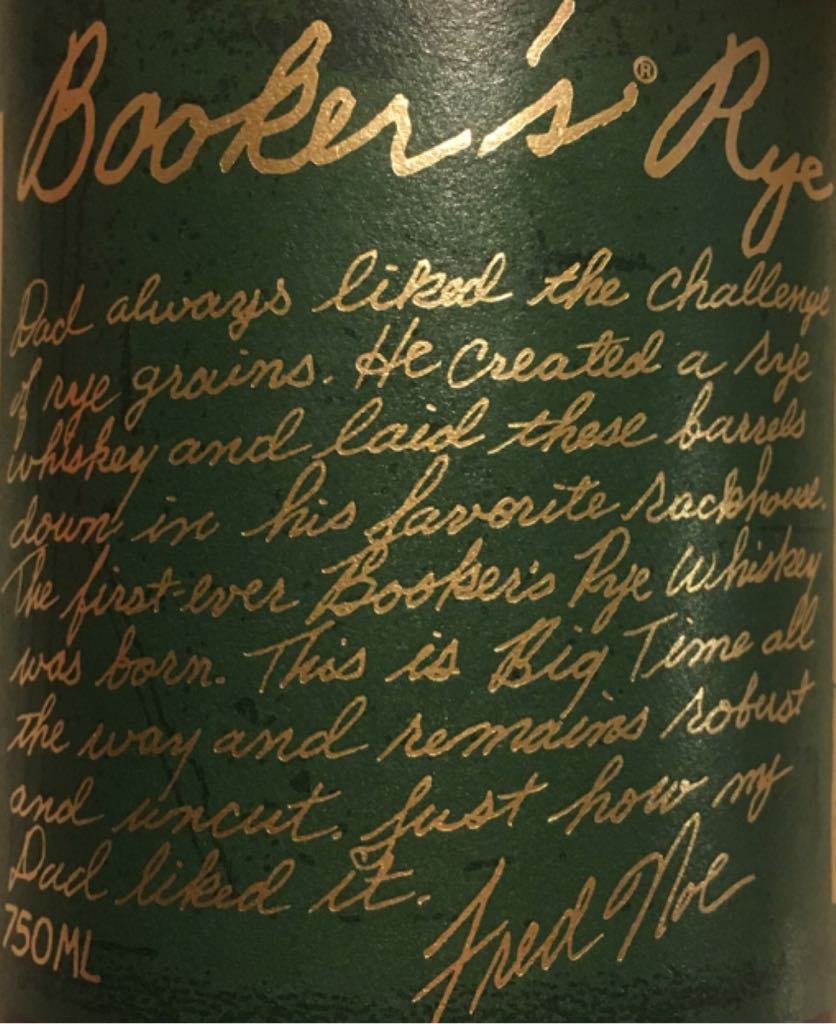 Booker's® Rye
Dad always liked the challenge
of rye grains. He created a rye
whiskey and laid these barrels
down in his favorite rackhouse.
The first-ever Booker's Rye Whiskey
was born. This is Big Time all
the way and remains robust
and uncut. Just how my
Dad liked it.
Fred Noe
750ML